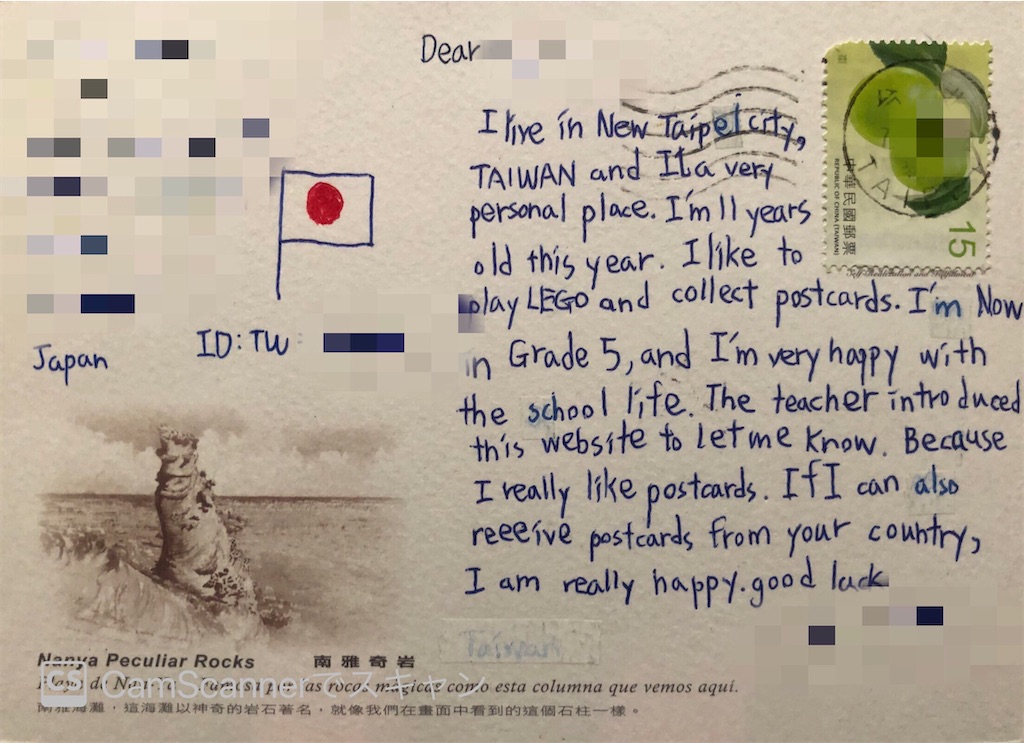 Dear
I live in New Taipei city,
TAIWAN and It a very
personal place. I'm 11 years
old this year. I like to
play LEGO and collect postcards. I'm Now
in Grade 5, and I'm very happy with
the school life. The teacher introduced
this website to let me know. Because
I really like postcards. If I can also
reeeive postcards from your country,
I am really happy. good luck
Taiwan
ID: TW
Japan
中華民國郵票
REPUBLIC OF CHINA (TAIWAN)
15
Nanya Peculiar Rocks 南雅奇岩
Playa de por las rocas mágicas como esta columna que vemos aquí.
南雅海灘，這海灘以神奇的岩石著名，就像我們在畫面中看到的這個石柱一樣。
CS CamScannerでスキャン